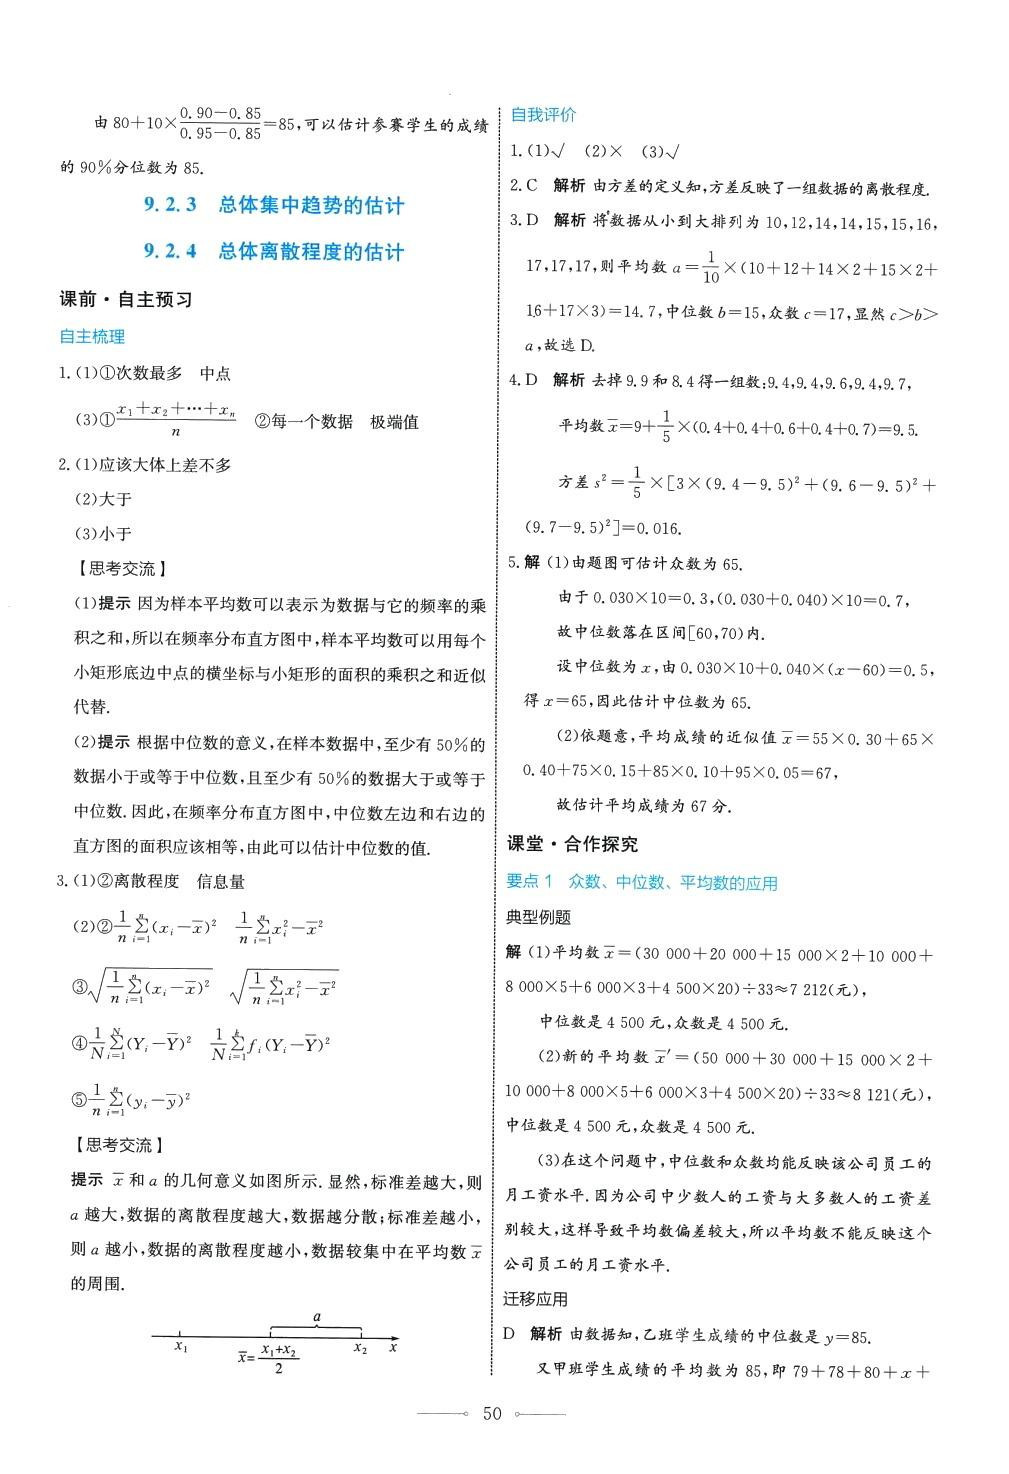 由 80+10×(0.90-0.85)/(0.95-0.85)=85,可以估计参赛学生的成绩
的 90%分位数为 85.
9.2.3 总体集中趋势的估计
9.2.4 总体离散程度的估计
课前·自主预习
自主梳理
1.(1)①次数最多 中点
(3)①(x₁+x₂+…+xₙ)/n ②每一个数据 极端值
2.(1)应该大体上差不多
(2)大于
(3)小于
【思考交流】
(1)提示 因为样本平均数可以表示为数据与它的频率的乘
积之和,所以在频率分布直方图中,样本平均数可以用每个
小矩形底边中点的横坐标与小矩形的面积的乘积之和近似
代替.
(2)提示 根据中位数的意义,在样本数据中,至少有 50%的
数据小于或等于中位数,且至少有 50%的数据大于或等于
中位数.因此,在频率分布直方图中,中位数左边和右边的
直方图的面积应该相等,由此可以估计中位数的值.
3.(1)②离散程度 信息量
(2)②1/n ∑ⁿᵢ₌₁(xᵢ-x̄)² 1/n ∑ⁿᵢ₌₁xᵢ²-x̄²
③√(1/n ∑ⁿᵢ₌₁(xᵢ-x̄)²) √(1/n ∑ⁿᵢ₌₁xᵢ²-x̄²)
④1/N ∑ᴺᵢ₌₁(Yᵢ-Ȳ)² 1/N ∑ᵏᵢ₌₁fᵢ(Yᵢ-Ȳ)²
⑤1/n ∑ⁿᵢ₌₁(yᵢ-ȳ)²
【思考交流】
提示 x̄ 和 a 的几何意义如图所示.显然,标准差越大,则
a 越大,数据的离散程度越大,数据越分散;标准差越小,
则 a 越小,数据的离散程度越小,数据较集中在平均数 x̄
的周围.
a
x₁ x̄=(x₁+x₂)/2 x₂ x
自我评价
1.(1)√ (2)× (3)√
2.C 解析 由方差的定义知,方差反映了一组数据的离散程度.
3.D 解析 将数据从小到大排列为 10,12,14,14,15,15,16,
17,17,17,则平均数 a=1/10×(10+12+14×2+15×2+
16+17×3)=14.7,中位数 b=15,众数 c=17,显然 c>b>
a,故选 D.
4.D 解析 去掉 9.9 和 8.4 得一组数:9.4,9.4,9.6,9.4,9.7,
平均数 x̄=9+1/5×(0.4+0.4+0.6+0.4+0.7)=9.5.
方差 s²=1/5×[3×(9.4-9.5)²+(9.6-9.5)²+
(9.7-9.5)²]=0.016.
5.解 (1)由题图可估计众数为 65.
由于 0.030×10=0.3,(0.030+0.040)×10=0.7,
故中位数落在区间[60,70)内.
设中位数为 x,由 0.030×10+0.040×(x-60)=0.5,
得 x=65,因此估计中位数为 65.
(2)依题意,平均成绩的近似值 x̄=55×0.30+65×
0.40+75×0.15+85×0.10+95×0.05=67,
故估计平均成绩为 67 分.
课堂·合作探究
要点 1 众数、中位数、平均数的应用
典型例题
解 (1)平均数 x̄=(30 000+20 000+15 000×2+10 000+
8 000×5+6 000×3+4 500×20)÷33≈7 212(元),
中位数是 4 500 元,众数是 4 500 元.
(2)新的平均数 x̄′=(50 000+30 000+15 000×2+
10 000+8 000×5+6 000×3+4 500×20)÷33≈8 121(元),
中位数是 4 500 元,众数是 4 500 元.
(3)在这个问题中,中位数和众数均能反映该公司员工的
月工资水平.因为公司中少数人的工资与大多数人的工资差
别较大,这样导致平均数偏差较大,所以平均数不能反映这个
公司员工的月工资水平.
迁移应用
D 解析 由数据知,乙班学生成绩的中位数是 y=85.
又甲班学生成绩的平均数为 85,即 79+78+80+x+
50